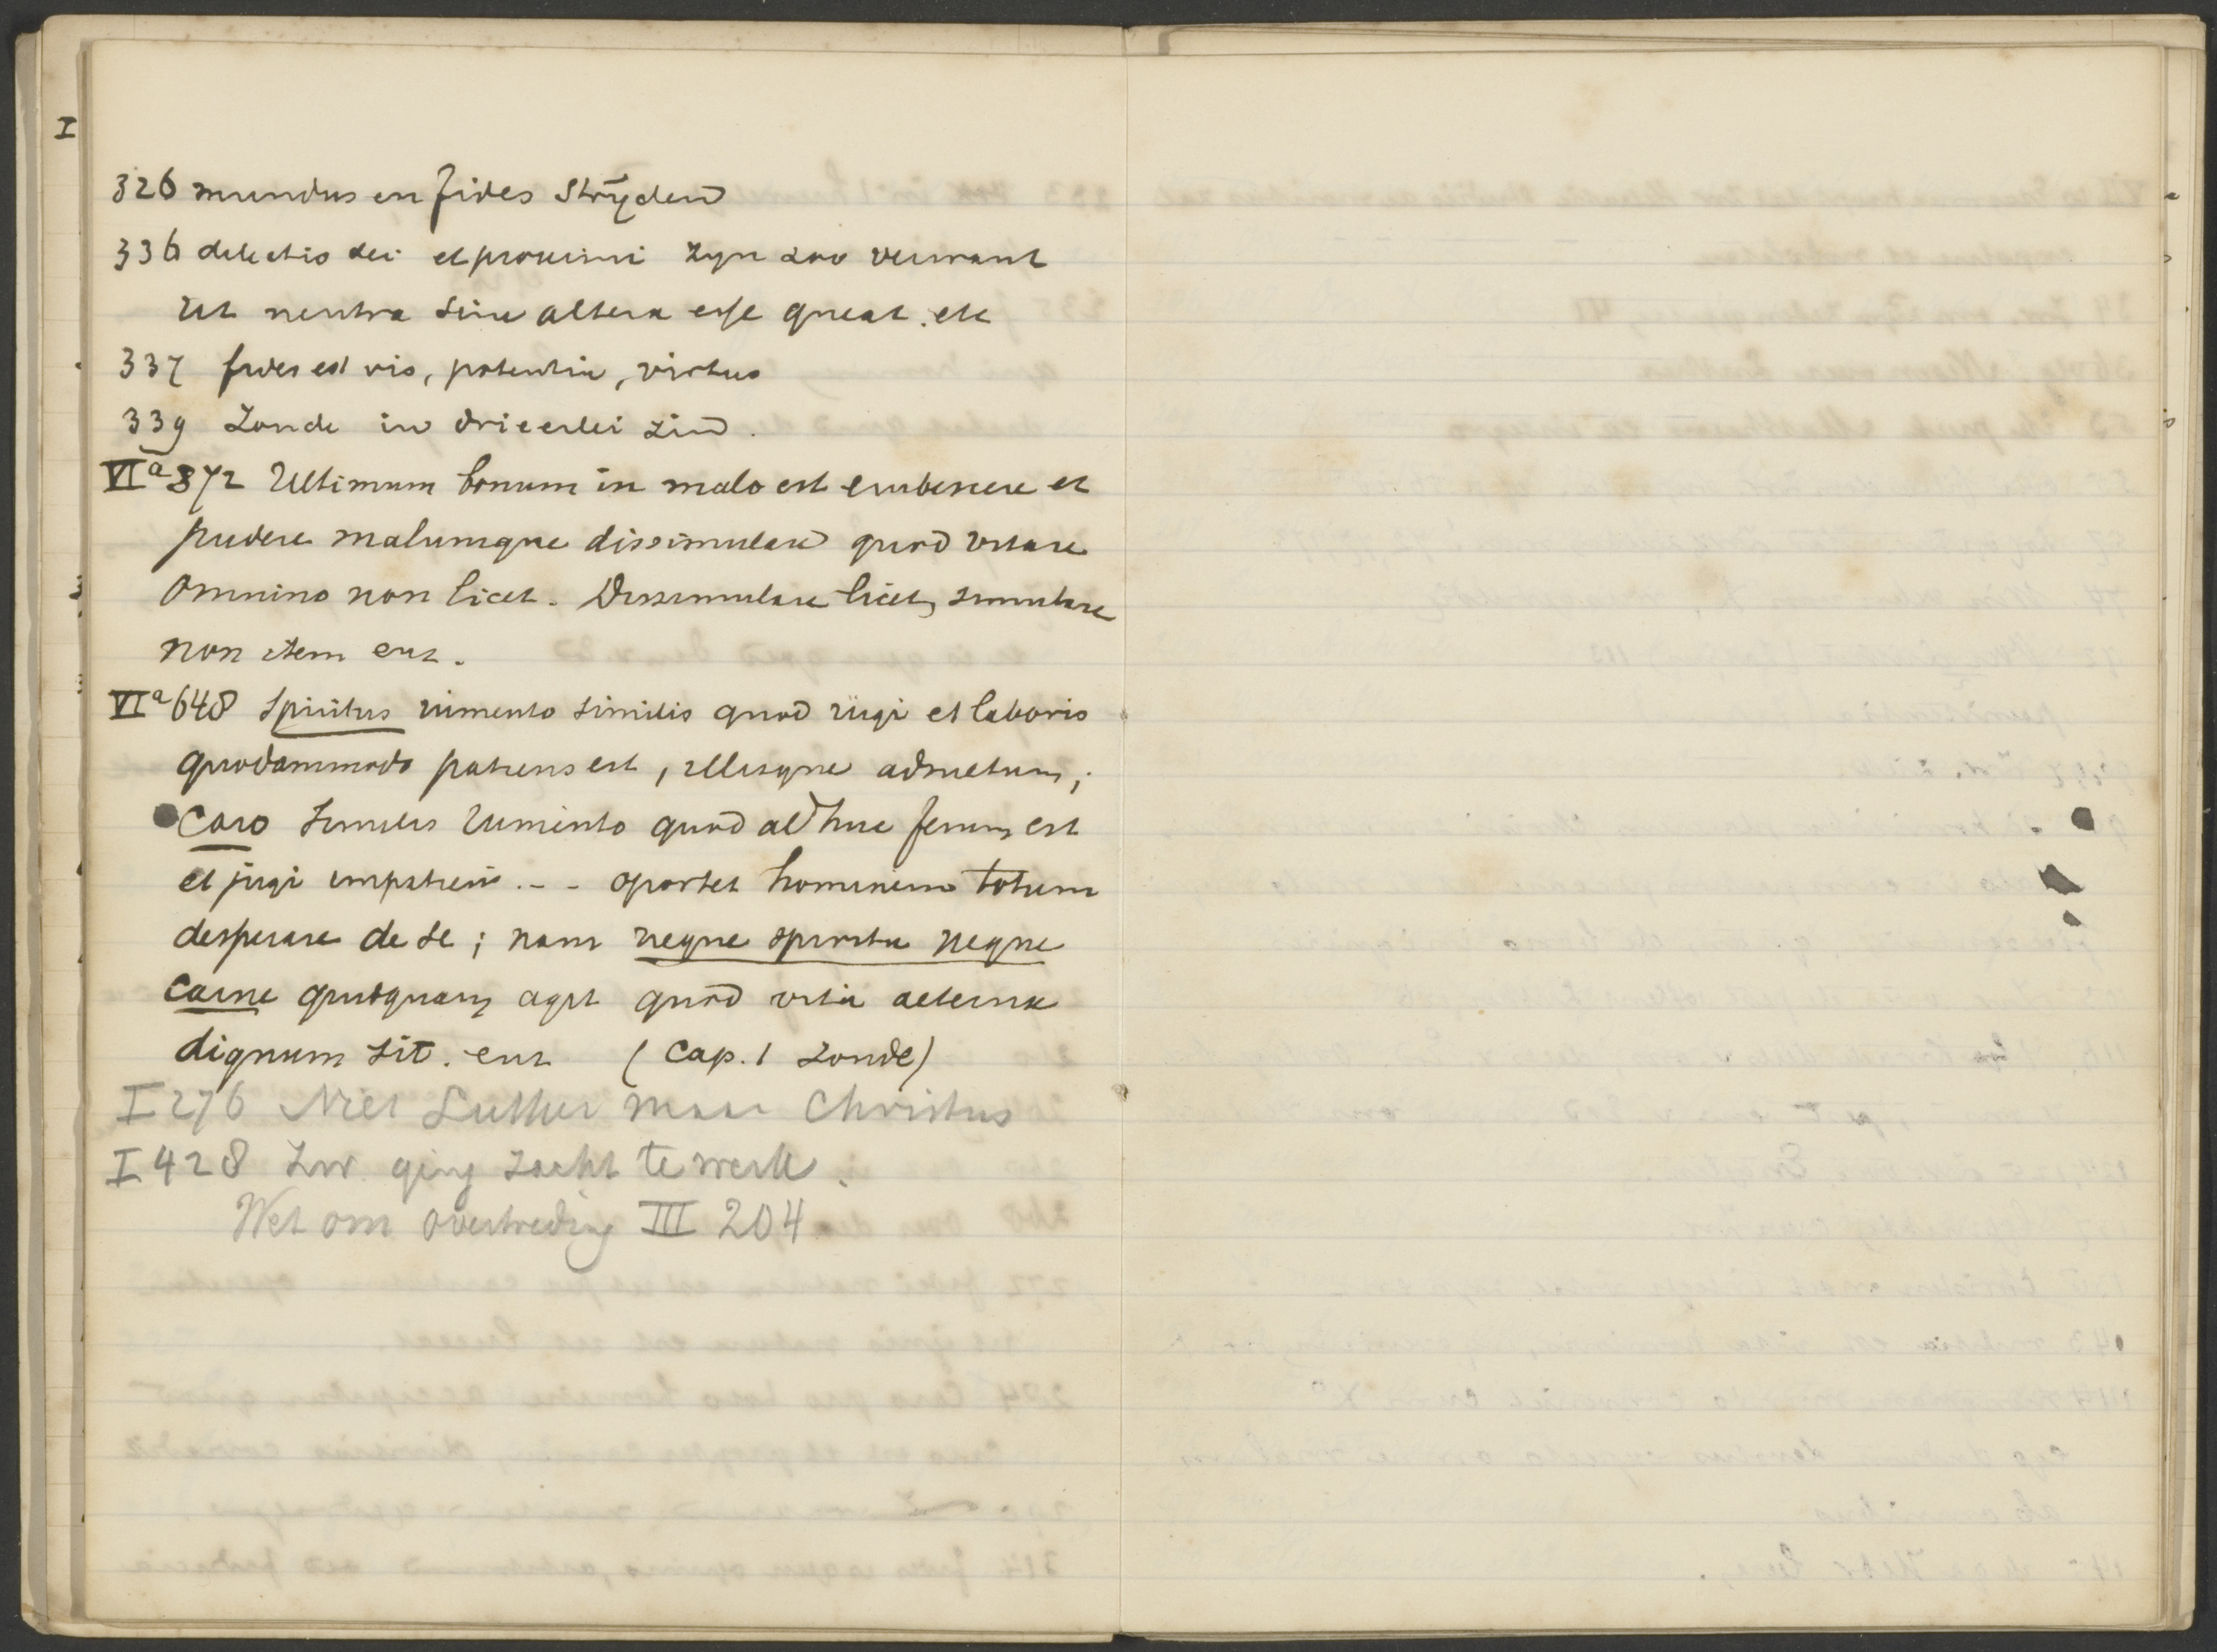 I
326 mundus en fides strijden
336 delectio dei et proximi zyn zoo verwant
ut neutra sine altera esse queat. etc
337 fides est vis, potentia, virtus
339 Zonde in drieerlei zin.
VIa 372 Ultimum bonum in malo est erubescere et
pudere malumque dissimulare quod vitare
omnino non licet. Dissimulare licet, simulare
non item enz.
VIa 648 Spiritus iumento similis quod iugi et laboris
quodammodo patiens est, illisque adsuetum;
Caro similis iumento quod adhuc ferum est
et jugi impatiens . - - oportet hominem totum
desperare de se; nam neque spiritu neque
carne quidquam agit quod vita aeterna
dignum sit. enz (Cap. 1 Zonde)
I 276 Niet Luther maar Christus
I 428 Zw. ging zacht te werk.
Wet om overtreding III 204